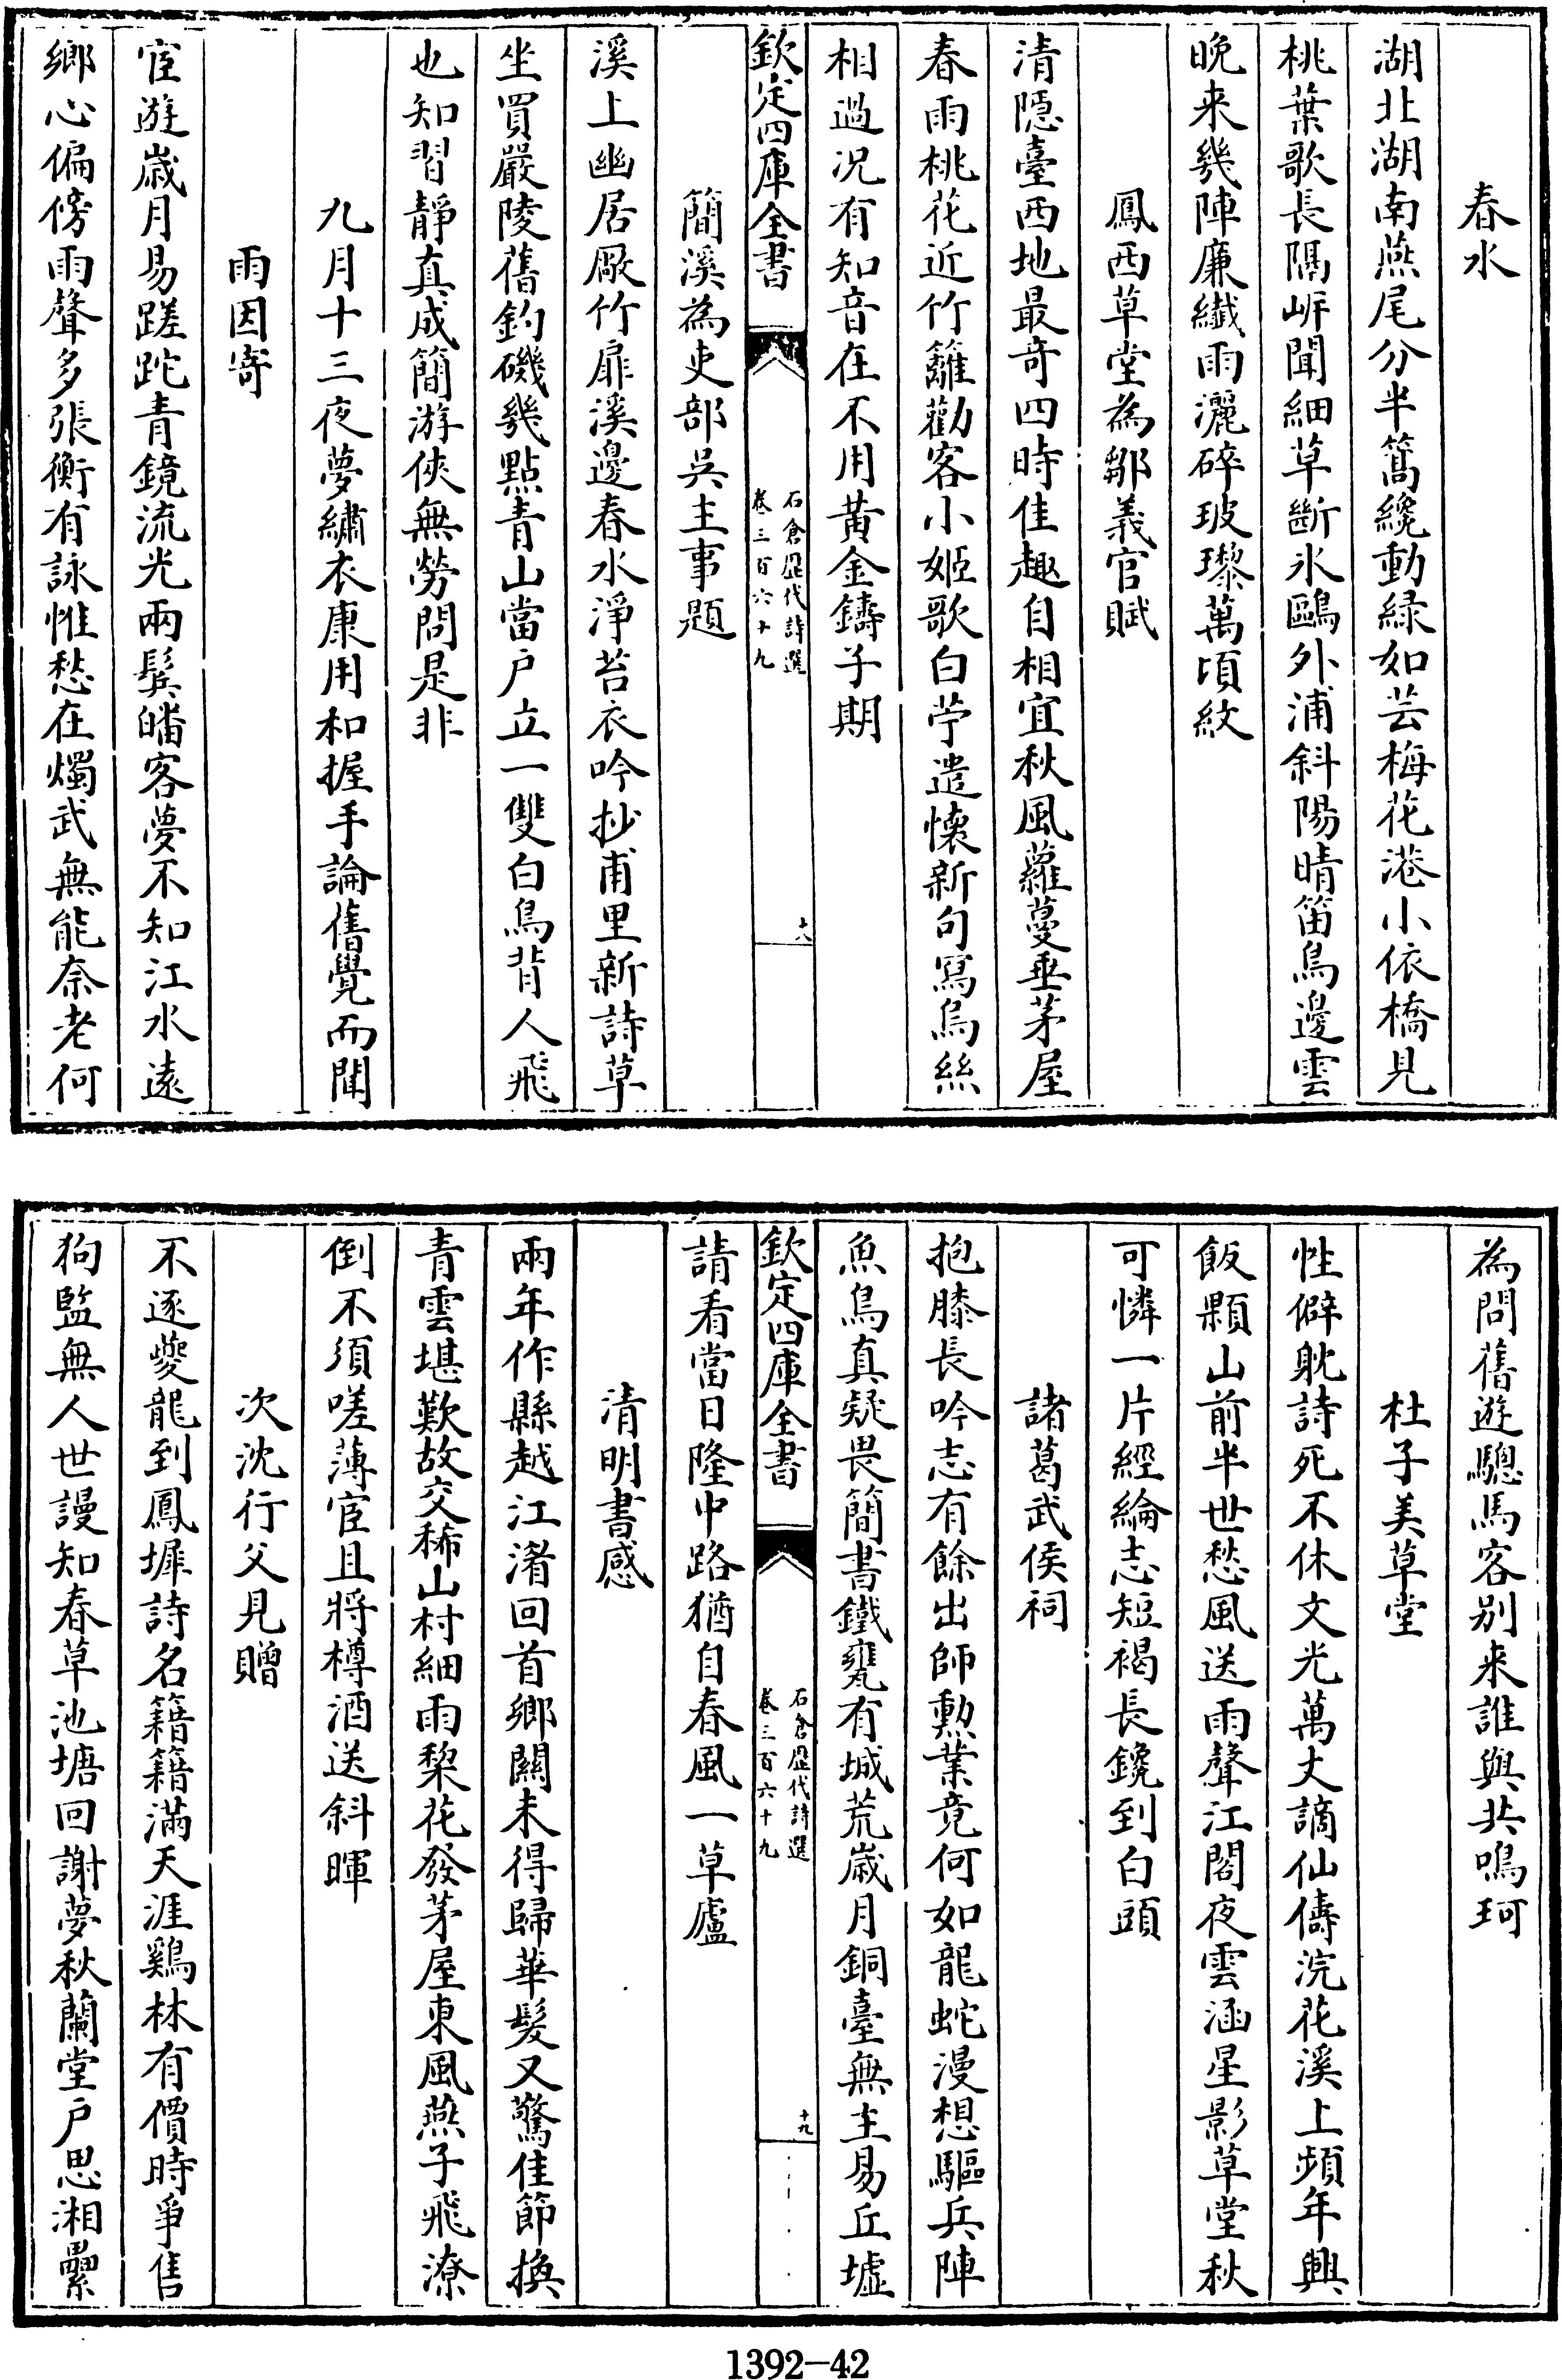 春水
湖北湖南燕尾分半篙纔動緑如芸梅花港小依橋見
桃葉歌長隔岍聞細草斷氷鷗外浦斜陽晴笛鳥邊雲
晚来幾陣廉纖雨灑碎玻瓈萬頃紋
鳳西草堂為鄒義官賦
清隱臺西地最奇四時佳趣自相宜秋風蘿蔓垂茅屋
春雨桃花近竹籬勸客小姬歌白苧遣懐新句寫烏絲
相過况有知音在不用黄金鑄子期
欽定四庫全書
石倉歴代詩選
卷三百六十九
十八
簡溪為吏部吳主事題
溪上幽居厰竹扉溪邊春水淨苔衣吟抄甫里新詩草
坐買嚴陵舊釣磯幾點青山當户立一雙白鳥背人飛
也知習靜真成簡游俠無勞問是非
九月十三夜夢繡衣康用和握手論舊覺而聞
雨因寄
宦遊歳月易蹉跎青鏡流光兩鬂皤客夢不知江水遠
鄉心偏傍雨聲多張衡有詠惟愁在燭武無能奈老何
為問舊遊驄馬客别来誰與共鳴珂
杜子美草堂
性僻躭詩死不休文光萬丈謫仙儔浣花溪上頻年興
飯顆山前半世愁風送雨聲江閣夜雲涵星影草堂秋
可憐一片經綸志短褐長鑱到白頭
諸葛武侯祠
抱膝長吟志有餘出師勲業竟何如龍蛇漫想驅兵陣
魚鳥真疑畏簡書鐵甕有城荒歳月銅臺無主易丘墟
欽定四庫全書
石倉歴代詩選
卷三百六十九
十九
請看當日隆中路猶自春風一草廬
清明書感
兩年作縣越江渚回首鄉關未得歸華髮又驚佳節換
青雲堪歎故交稀山村細雨棃花發茅屋東風燕子飛潦
倒不須嗟薄宦且將樽酒送斜暉
次沈行父見贈
不逐夔龍到鳳墀詩名籍籍滿天涯鷄林有價時爭售
狗監無人世謾知春草池塘回謝夢秋蘭堂户思湘纍
1392-42